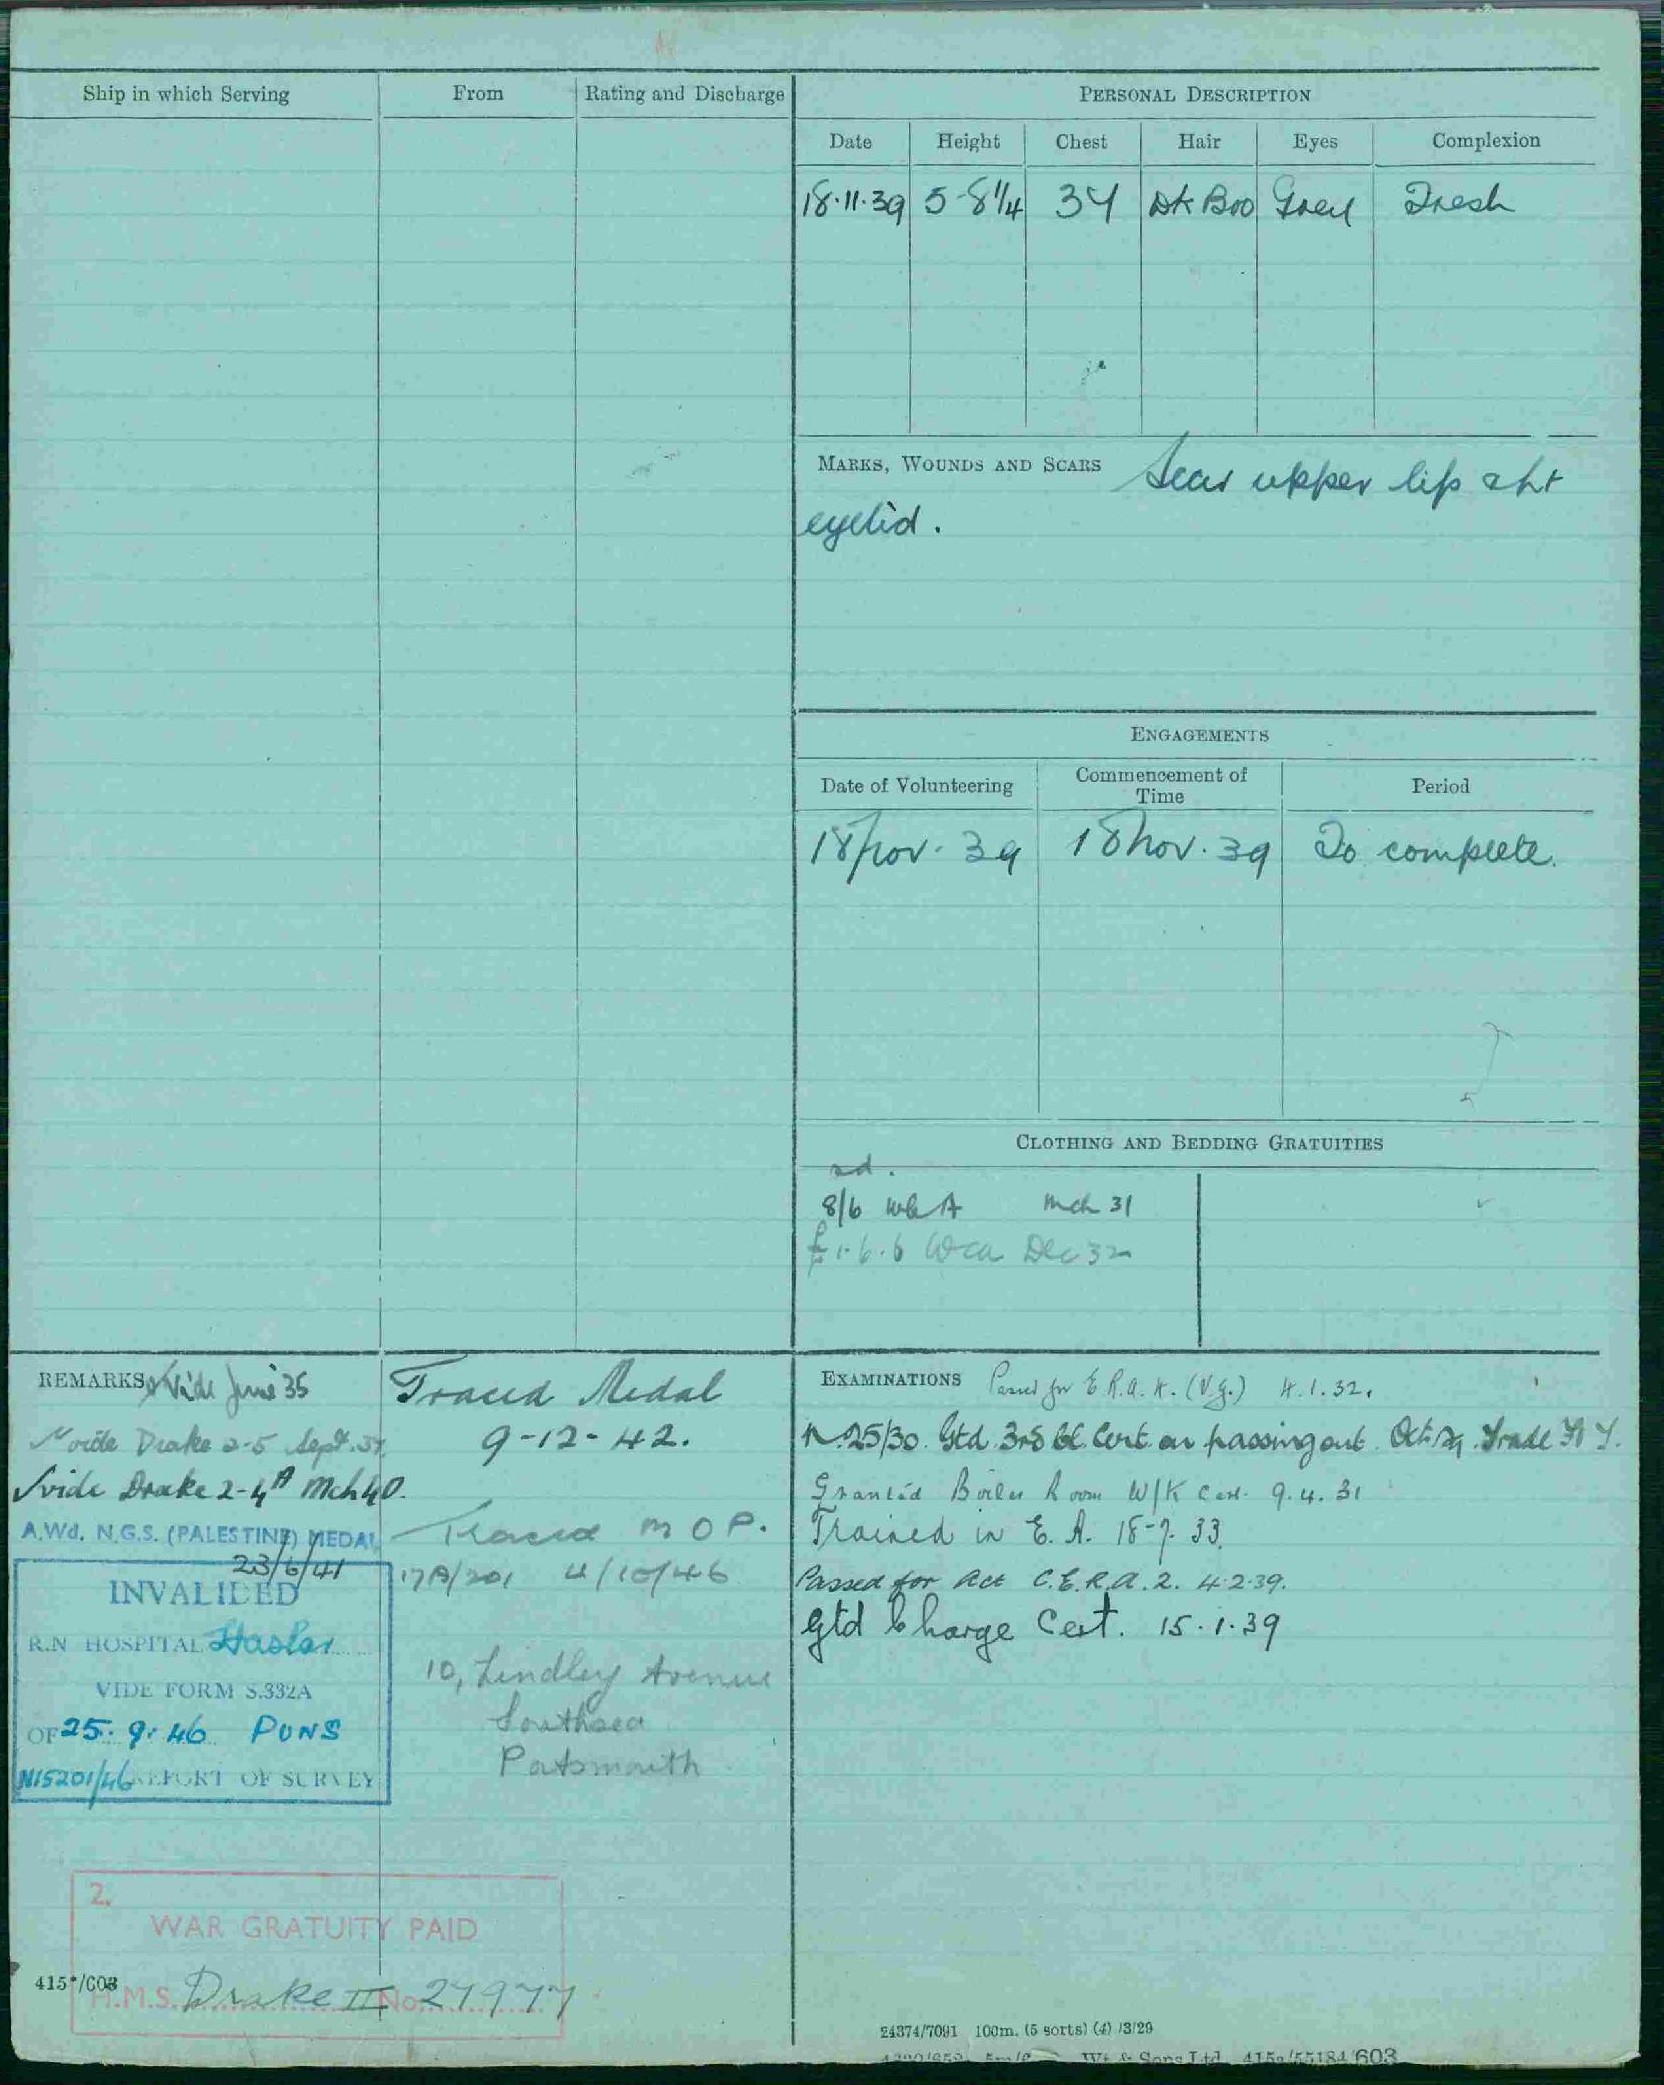 Ship in which Serving
From
Rating and Discharge
PERSONAL DESCRIPTION
Date
Height
Chest
Hair
Eyes
Complexion
18.11.39
5-8¼
34
Dk Bro
Grey
Fresh
MARKS, WOUNDS AND SCARS Scar upper lip & rt
eyelid.
ENGAGEMENTS
Date of Volunteering
Commencement of
Time
Period
18 Nov. 39
18 Nov. 39
To complete.
CLOTHING AND BEDDING GRATUITIES
8/6 Mch 31
£1.6.6 Dec 32
REMARKS Vide June 35
Vide Drake 2-5 Sept.
Vide Drake 2-4 Mch 40.
A.Wd. N.G.S. (PALESTINE) MEDAL
23/6/41
INVALIDED
R.N HOSPITAL Haslar
VIDE FORM S.332A
OF 25.9.46 PONS
N15201/46 REPORT OF SURVEY
Traced Medal
9-12-42.
Traced M O P.
17A/201 4/10/46
10, Lindley Avenue
Southsea
Portsmouth
EXAMINATIONS Passed for E.R.A. 4. (V.g.) 4.1.32.
N.25/30. Gtd. 3rd Cl. Cert on passing out Trade
Granted Boiler Room W/K Cert. 9.4.31
Trained in E. A. 18-7-33.
Passed for Act C.E.R.A.2. 4.2.39.
Gtd Charge Cert. 15.1.39
2.
WAR GRATUITY PAID
415*/603
H.M.S. Drake II No. 27977
24374/7091 100m. (5 sorts) (4) /3/29
Wt & Sons Ltd. 415a/55184/603